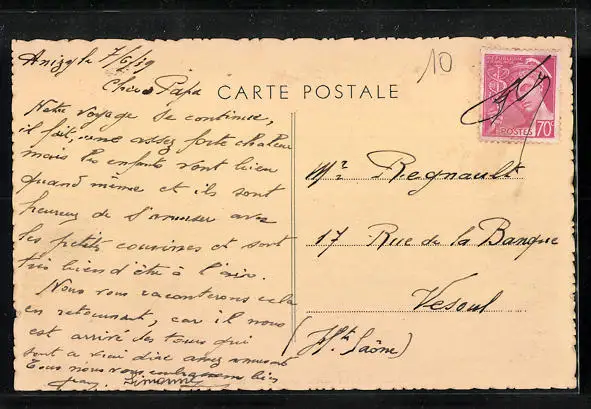 Anizy le 7/6/39
10
Cher Papa
CARTE POSTALE
REPUBLIQUE FRANÇAISE
POSTES 70c
Notre voyage se continue,
il fait une assez forte chaleur
mais les enfants vont bien
quand même et ils sont
heureux de s'amuser avec
les petits cousines et sont
très bien d'être à l'air.
Nous vous raconterons cela
en retournant, car il nous
est arrivé des tours qui
sont à vrai dire assez amusant
Tous nous vous embrassons bien
Simonne
Mr Regnault
17 Rue de la Banque
Vesoul
(Hte Saône)